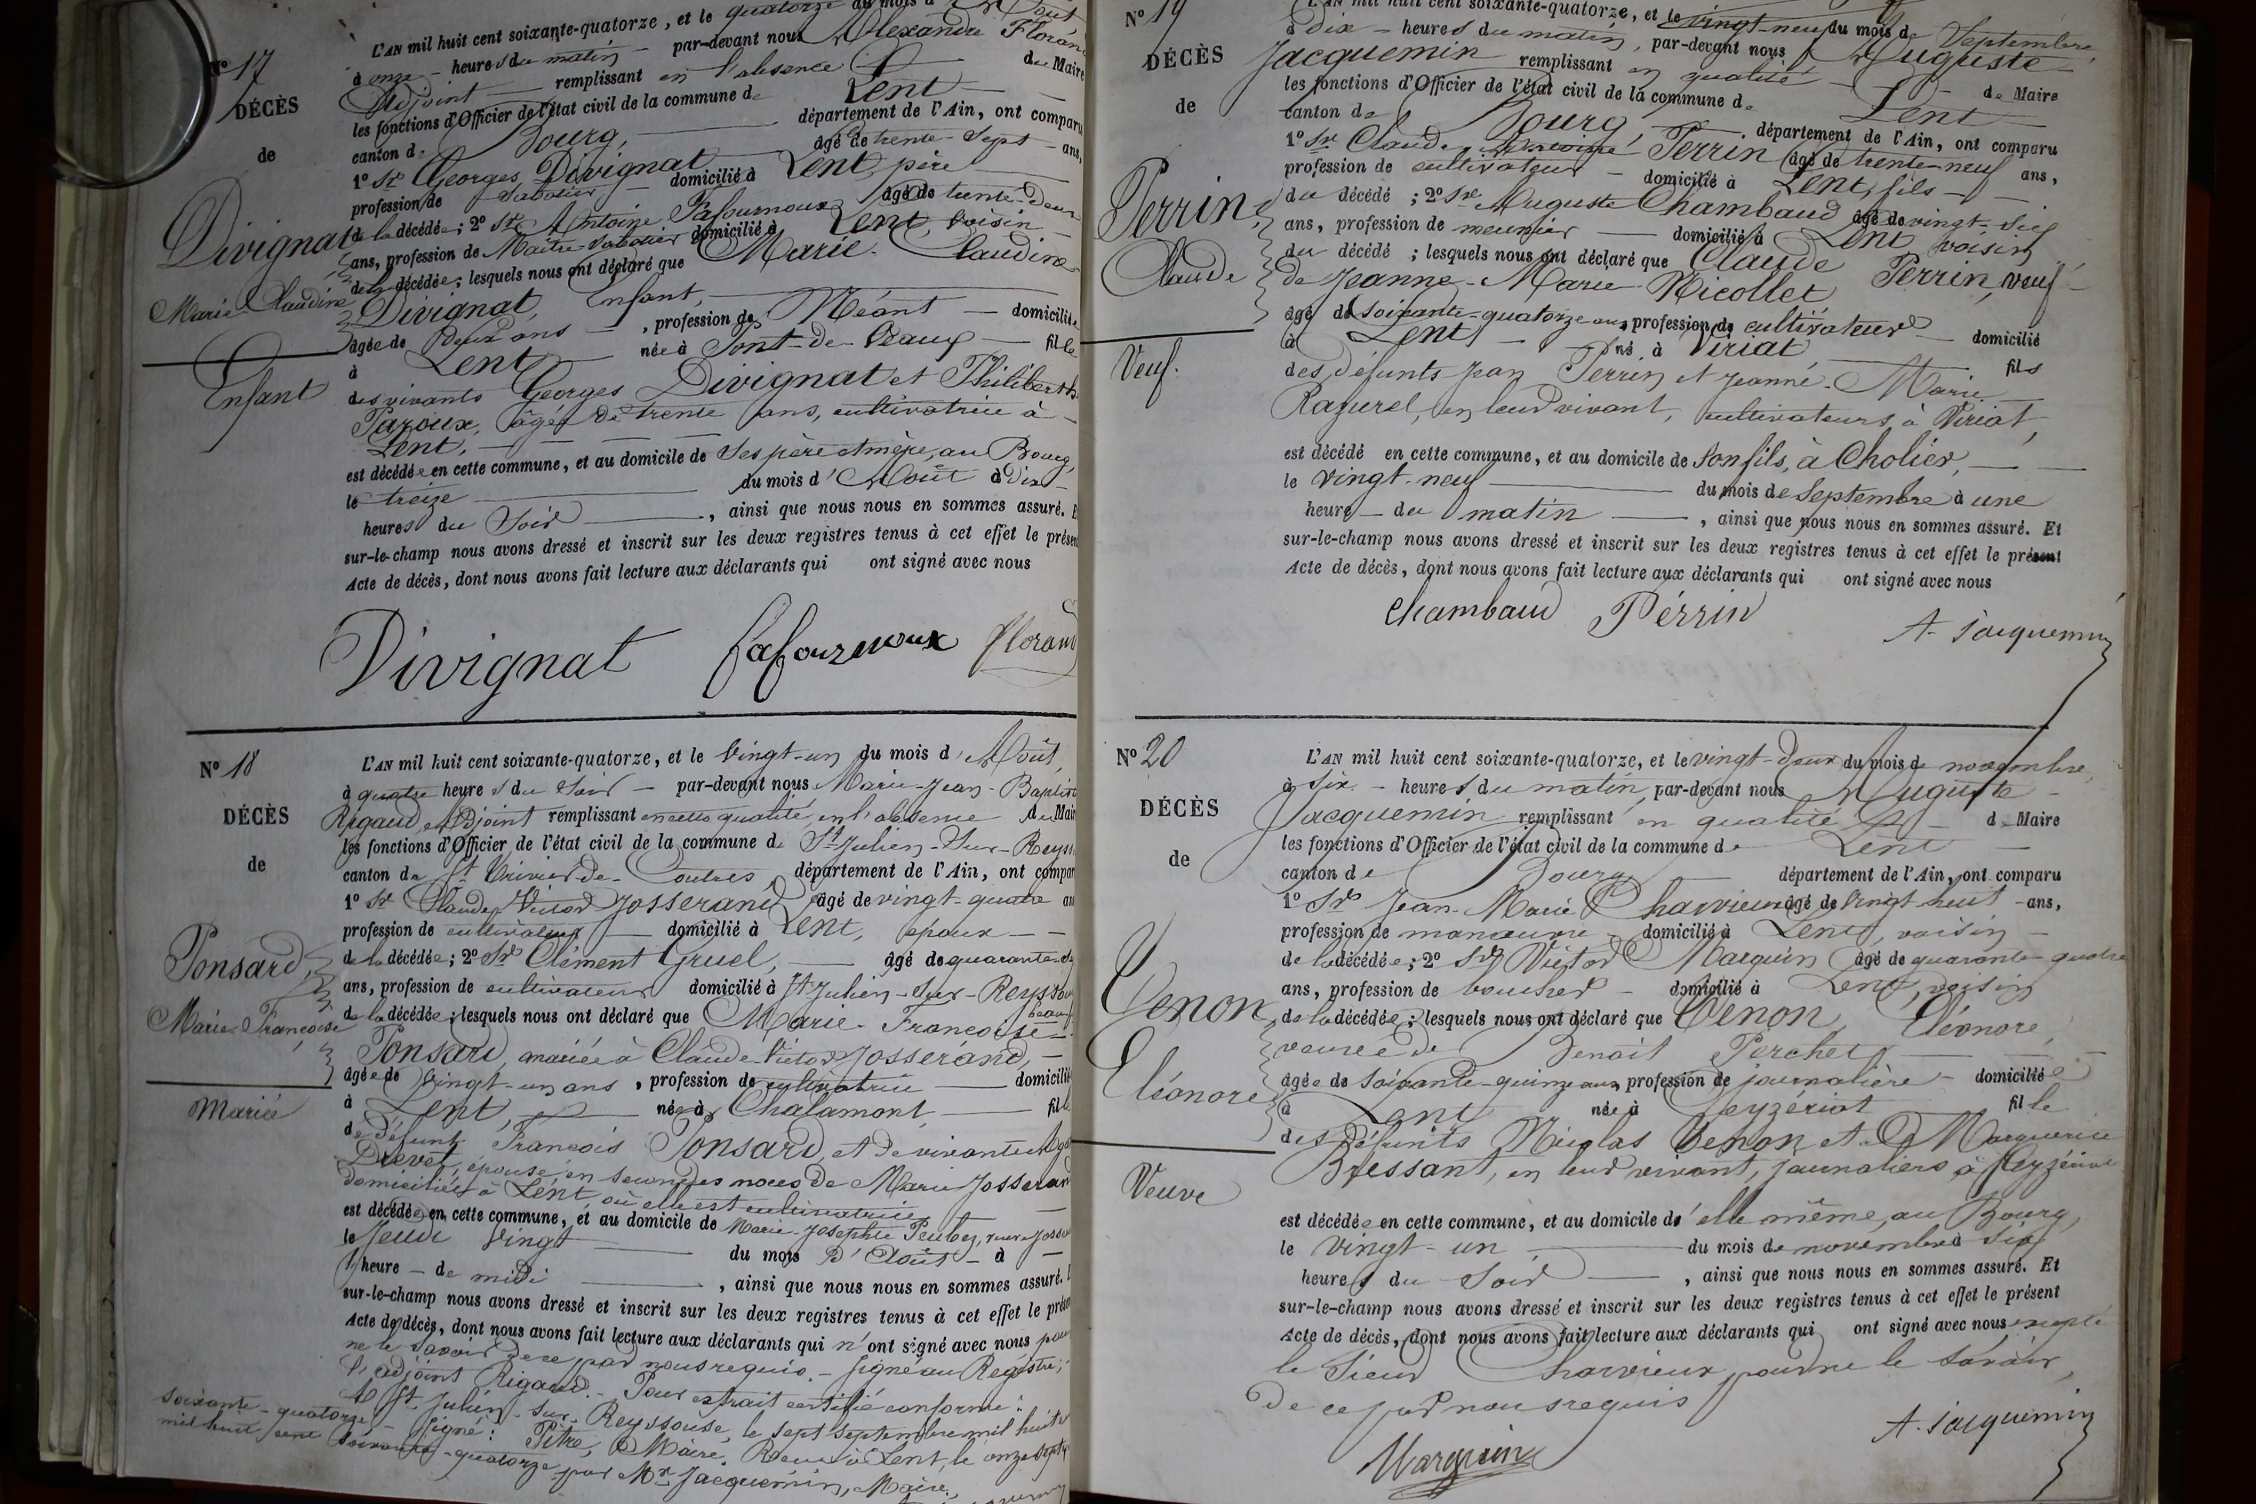 N° 17
DÉCÈS
de
Divignat
Marie Claudine
Enfant
L'AN mil huit cent soixante-quatorze, et le quatorze du mois d'Août
à onze heures du matin par-devant nous Alexandre Floran
Adjoint remplissant en l'absence du Maire
les fonctions d'Officier de l'état civil de la commune de Lent
canton de Bourg, département de l'Ain, ont comparu
1° Sr Georges Divignat âgé de trente-sept ans,
profession de Sabotier domicilié à Lent, père
de la décédée; 2° Sr Antoine Lafournoux âgé de trente-deux
ans, profession de Maître-Sabotier domicilié à Lent, voisin
de la décédée; lesquels nous ont déclaré que Marie-Claudine
Divignat, Enfant,
âgée de deux ans, profession de Néant domiciliée
à Lent née à Pont-de-Vaux fille
des vivants Georges Divignat et Philiberthe
Paroux, âgée de trente ans, cultivatrice à
Lent,
est décédée en cette commune, et au domicile de ses père et mère, au Bourg,
le treize du mois d'Août à Dix
heures du Soir, ainsi que nous nous en sommes assuré. E
sur-le-champ nous avons dressé et inscrit sur les deux registres tenus à cet effet le présen
Acte de décès, dont nous avons fait lecture aux déclarants qui ont signé avec nous
Divignat Lafournoux Florand
N° 18
DÉCÈS
de
Ponsard,
Marie-Françoise
Mariée
L'AN mil huit cent soixante-quatorze, et le vingt-un du mois d'Août,
à quatre heures du Soir par-devant nous Marie-Jean-Baptiste
Rigaud, adjoint remplissant en cette qualité, en l'absence du Mair
les fonctions d'Officier de l'état civil de la commune de St Julien-Sur-Reyss
canton de St Trivier-de-Courtes département de l'Ain, ont compar
1° Sr Claude Victor Josserand âgé de vingt-quatre an
profession de cultivateur domicilié à Lent, époux
de la décédée; 2° Sr Clément Gruel, âgé de quarante
ans, profession de cultivateur domicilié à St Julien-Sur-Reyssouze
de la décédée; lesquels nous ont déclaré que Marie-Françoise
Ponsard, mariée à Claude Victor Josserand,
âgée de vingt-un ans, profession de cultivatrice domicilié
à Lent, née à Chalamont, fille
de défunt François Ponsard, et de vivante
Drevet, épouse en secondes noces de Marie Josserand
domiciliée à Lent, où elle est cultivatrice
est décédée en cette commune, et au domicile de Marie-Josephte, veuve Josser
le Jeudi vingt du mois d'Août à
l'heure de midi, ainsi que nous nous en sommes assuré.
sur-le-champ nous avons dressé et inscrit sur les deux registres tenus à cet effet le présen
Acte de décès, dont nous avons fait lecture aux déclarants qui n'ont signé avec nous pour
ne le savoir de ce par nous requis. Signé au Registre;
L'adjoint Rigaud. Pour extrait certifié conforme:
A St Julien-Sur-Reyssouze, le sept Septembre mil huit
soixante-quatorze Signé: Pitre, Maire. Reçu à Lent, le onze Sept
mil huit cent soixante-quatorze par Mr Jacquemin, Maire.
N° 19
DÉCÈS
de
Perrin,
Claude
Veuf.
L'AN mil huit cent soixante-quatorze, et le vingt-neuf du mois de Septembre
à dix heures du matin, par-devant nous Auguste
Jacquemin remplissant en qualité de Maire
les fonctions d'Officier de l'état civil de la commune de Lent
canton de Bourg, département de l'Ain, ont comparu
1° Sr Claude Perrin âgé de trente-neuf ans,
profession de cultivateur domicilié à Lent, fils
du décédé; 2° Sr Auguste Chambaud âgé de vingt-six
ans, profession de meunier domicilié à Lent voisin
du décédé; lesquels nous ont déclaré que Claude Perrin, veuf
de Jeanne-Marie Nicollet
âgé de soixante-quatorze ans, profession de cultivateur domicilié
à Lent né à Viriat fils
des défunts Jean Perrin et Jeanne-Marie
Razurel, en leur vivant, cultivateurs à Viriat,
est décédé en cette commune, et au domicile de son fils, à Cholier,
le vingt-neuf du mois de Septembre à une
heure du matin, ainsi que nous nous en sommes assuré. Et
sur-le-champ nous avons dressé et inscrit sur les deux registres tenus à cet effet le présent
Acte de décès, dont nous avons fait lecture aux déclarants qui ont signé avec nous
Chambaud Pérrin A. Jacquemin
N° 20
DÉCÈS
de
Venon,
Eléonore
Veuve
L'AN mil huit cent soixante-quatorze, et le vingt-deux du mois de novembre,
à six heures du matin, par-devant nous Auguste
Jacquemin remplissant en qualité de Maire
les fonctions d'Officier de l'état civil de la commune de Lent
canton de Bourg département de l'Ain, ont comparu
1° Sr Jean-Marie Charvieux âgé de vingt huit ans,
profession de manœuvre domicilié à Lent, voisin
de la décédée; 2° Sr Victor Marguin âgé de quarante-quatre
ans, profession de boucher domicilié à Lent, voisin
de la décédée; lesquels nous ont déclaré que Venon, Eléonore,
veuve de Benoit Perchet
âgée de soixante-quinze ans, profession de journalière domiciliée
à Lent née à Ceyzériat fille
des défunts Nicolas Venon et Marguerite
Bressant, en leur vivant, journaliers à Ceyzériat
est décédée en cette commune, et au domicile d'elle même, au Bourg,
le vingt-un du mois de novembre à six
heures du Soir, ainsi que nous nous en sommes assuré. Et
sur-le-champ nous avons dressé et inscrit sur les deux registres tenus à cet effet le présent
Acte de décès, dont nous avons fait lecture aux déclarants qui ont signé avec nous, excepté
le Sieur Charvieux pour ne le savoir,
de ce par nous requis
Marguin A. Jacquemin